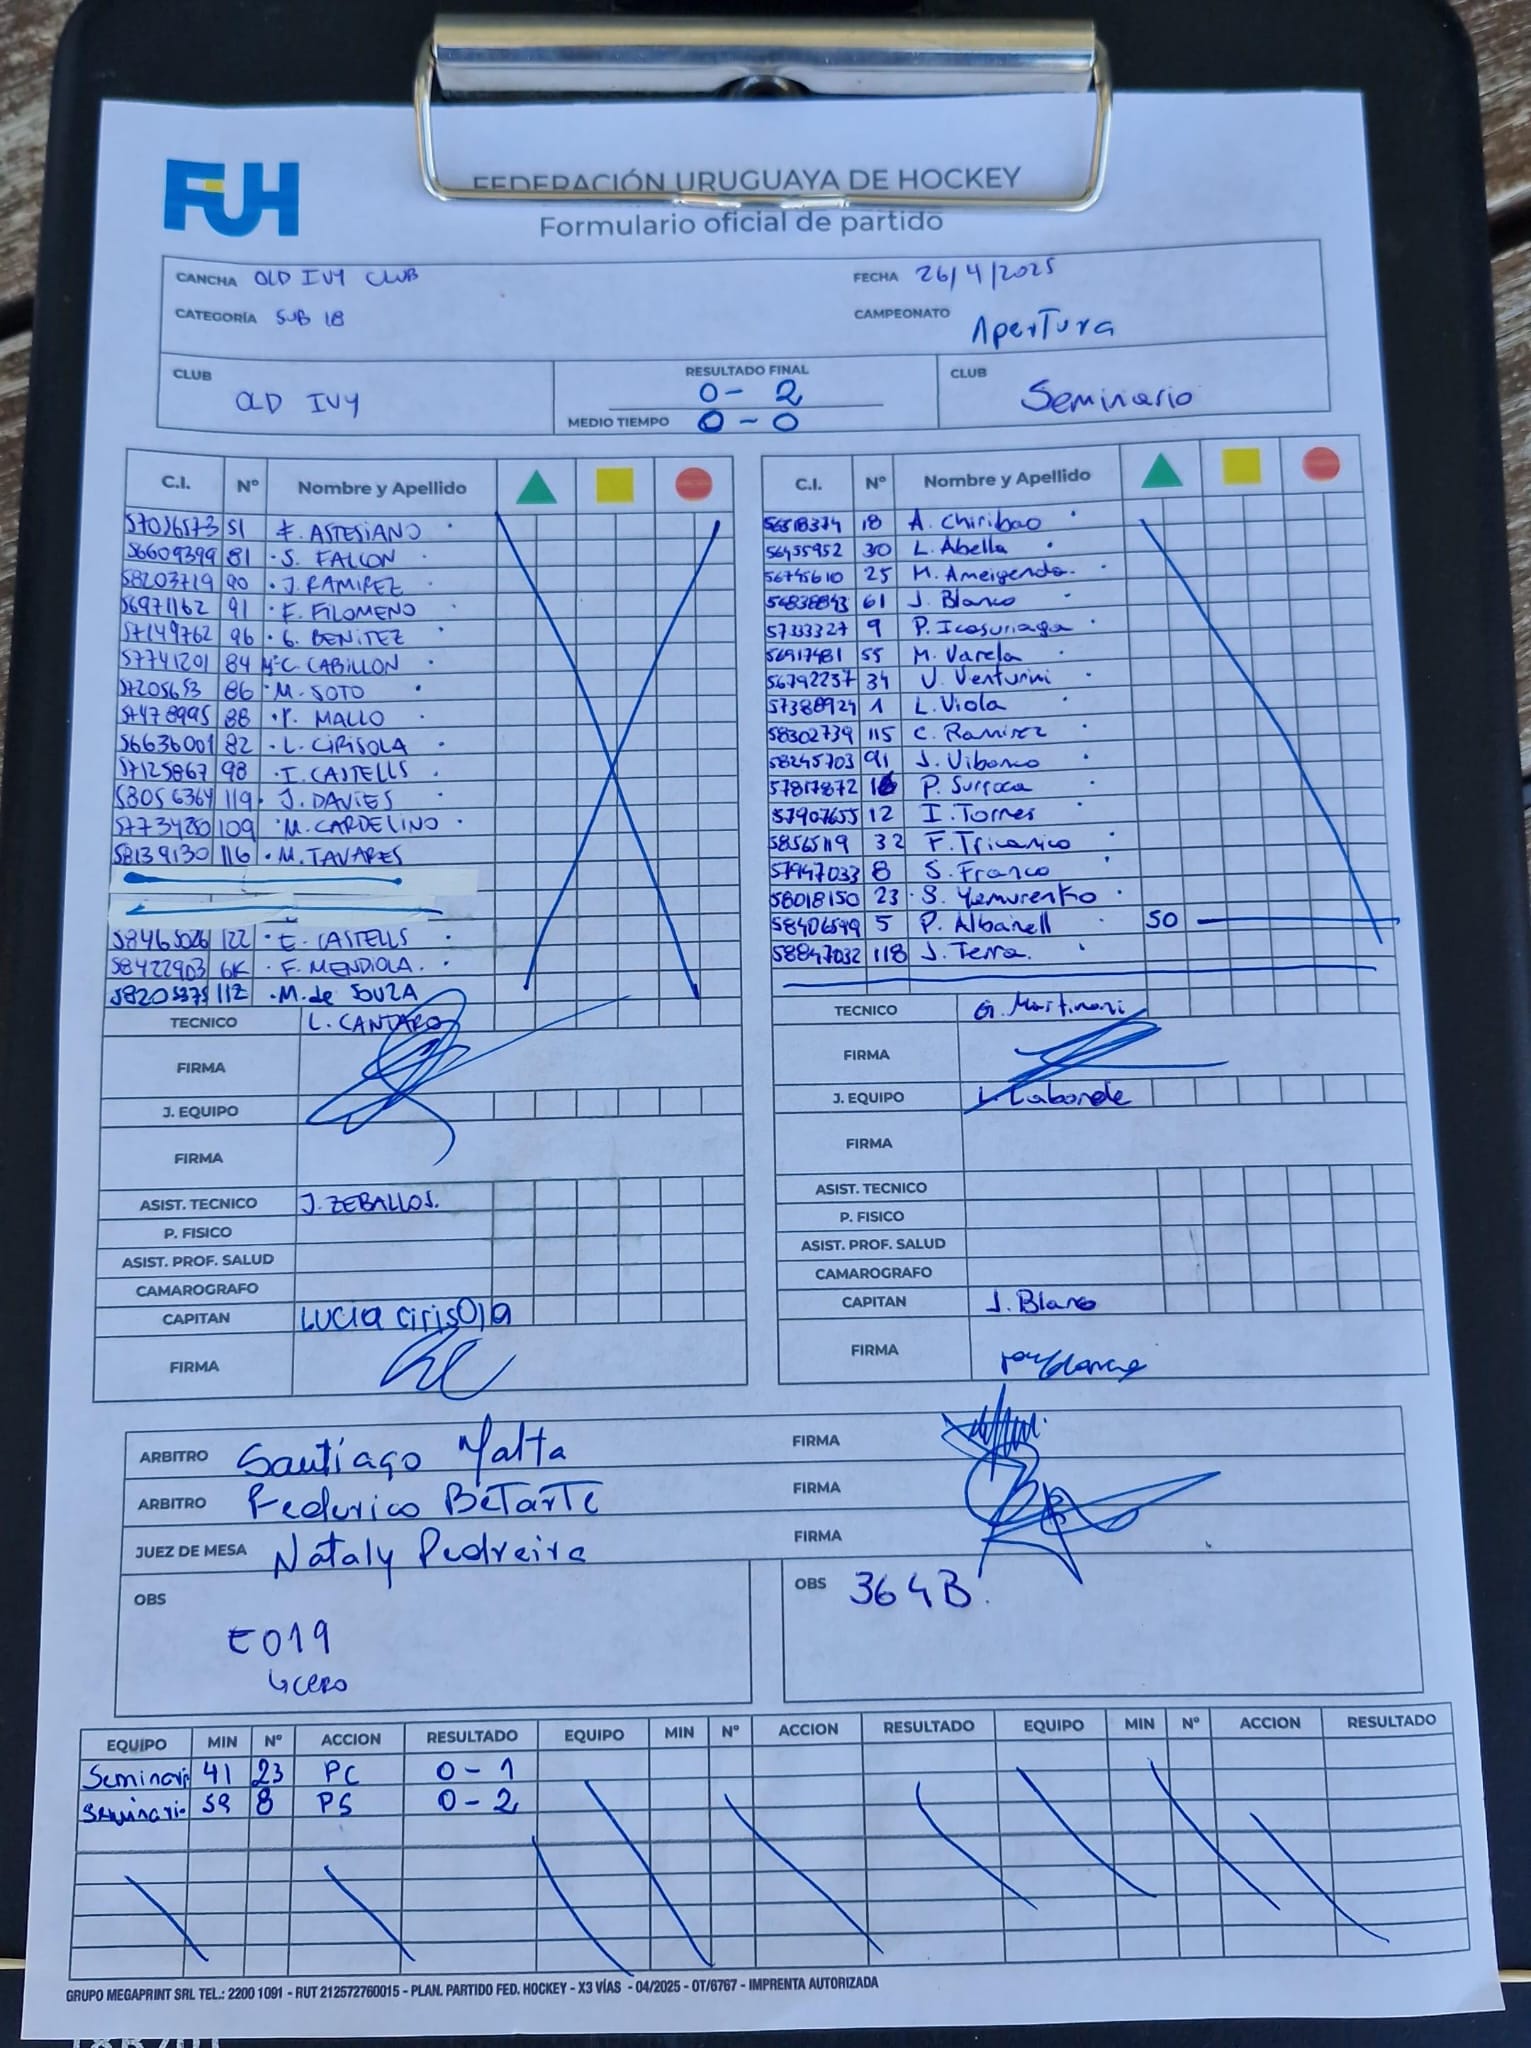 FUH
FEDERACIÓN URUGUAYA DE HOCKEY
Formulario oficial de partido
CANCHA OLD IVY CLUB FECHA 26/4/2025
CATEGORÍA SUB 18 CAMPEONATO Apertura
CLUB OLD IVY RESULTADO FINAL 0 - 2 CLUB Seminario
MEDIO TIEMPO 0 - 0
C.I. Nº Nombre y Apellido
51 F. ASTESIANO
56609399 81 S. FALCON
58203719 90 J. RAMIREZ
56971162 91 F. FILOMENO
57149762 96 G. BENITEZ
57741201 84 Mº C. CABILLON
86 M. SOTO
57478995 88 P. MALLO
56636001 82 L. CIRISOLA
57125867 98 I. CASTELLS
58056364 119 J. DAVIES
109 M. CARDELINO
58139130 116 M. TAVARES
58465026 122 E. CASTELLS
58422903 GK F. MENDIOLA.
112 M. de SOUZA
TECNICO L. CANTARO
FIRMA
J. EQUIPO
FIRMA
ASIST. TECNICO J. ZEBALLOS.
P. FISICO
ASIST. PROF. SALUD
CAMAROGRAFO
CAPITAN LUCIA CIRISOLA
FIRMA
C.I. Nº Nombre y Apellido
56518374 18 A. Chiribao
56455952 30 L. Abella
56745610 25 M. Ameigenda.
61 J. Blanco
57333327 9 P. Icasuriaga
56917481 55 M. Varela
56792237 34 V. Venturini
57388924 1 L. Viola
58302739 115 C. Ramirez
58245703 91 J. Vibonco
57817872 16 P. Surroca
57907655 12 I. Torres
58565119 32 F. Tricanico
57947033 8 S. Franco
58018150 23 S. Yemurenko
58406599 5 P. Albanell 50
58847032 118 J. Terra.
TECNICO G. Martinoni
FIRMA
J. EQUIPO L. Laborde
FIRMA
ASIST. TECNICO
P. FISICO
ASIST. PROF. SALUD
CAMAROGRAFO
CAPITAN J. Blanco
FIRMA
ARBITRO Santiago Malta FIRMA
ARBITRO Federico Betarte FIRMA
JUEZ DE MESA Nataly Pedreira FIRMA
OBS
E019
cero
OBS 364B.
EQUIPO MIN Nº ACCION RESULTADO EQUIPO MIN Nº ACCION RESULTADO EQUIPO MIN Nº ACCION RESULTADO
Seminari 41 23 PC 0 - 1
Seminario 59 8 PS 0 - 2
GRUPO MEGAPRINT SRL TEL.: 2200 1091 - RUT 212572760015 - PLAN. PARTIDO FED. HOCKEY - X3 VÍAS - 04/2025 - OT/6767 - IMPRENTA AUTORIZADA